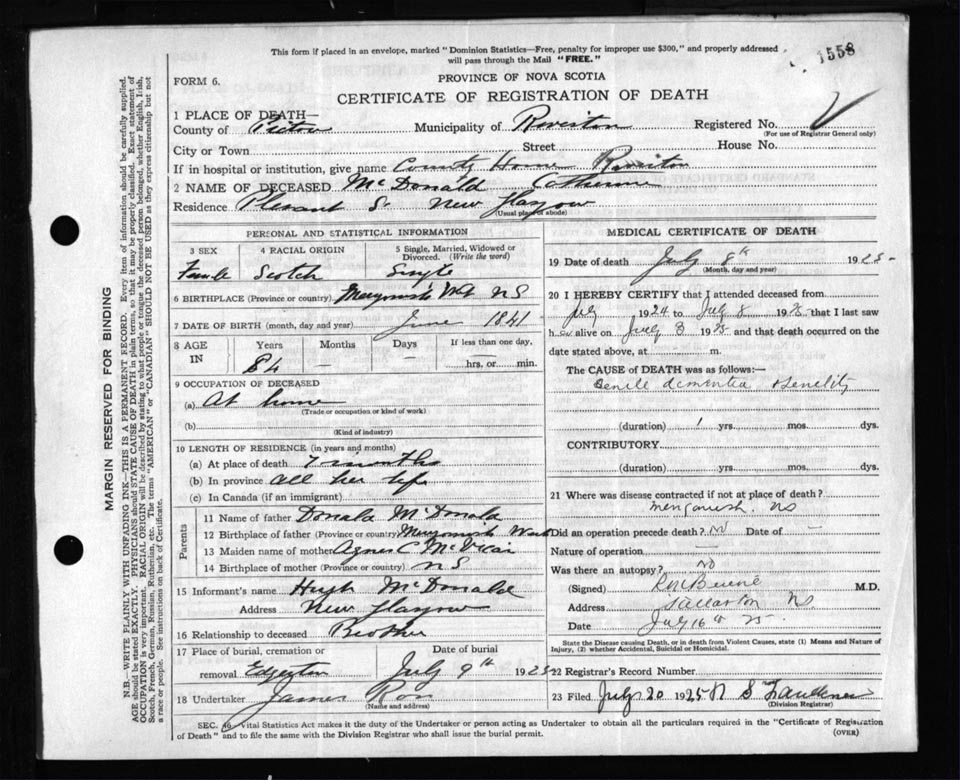 This form if placed in an envelope, marked "Dominion Statistics—Free, penalty for improper use $300," and properly addressed
will pass through the Mail "FREE."
1558
FORM 6.
PROVINCE OF NOVA SCOTIA
CERTIFICATE OF REGISTRATION OF DEATH
1 PLACE OF DEATH—
County of Pictou Municipality of Riverton Registered No.
(For use of Registrar General only)
City or Town Street House No.
If in hospital or institution, give name County Home Riverton
2 NAME OF DECEASED McDonald Catherine
Residence Plesant St. New Glasgow
(Usual place of abode)
PERSONAL AND STATISTICAL INFORMATION
3 SEX 4 RACIAL ORIGIN 5 Single, Married, Widowed or
Divorced. (Write the word)
Female Scotch Single
6 BIRTHPLACE (Province or country) NS
7 DATE OF BIRTH (month, day and year) June 1841
8 AGE IN Years Months Days If less than one day,
84 — — hrs. or min.
9 OCCUPATION OF DECEASED
(a) At home
(Trade or occupation or kind of work)
(b)
(Kind of industry)
10 LENGTH OF RESIDENCE (in years and months)
(a) At place of death 7 months
(b) In province All her life
(c) In Canada (if an immigrant)
Parents
11 Name of father Donald McDonald
12 Birthplace of father (Province or country)
13 Maiden name of mother Agnes C McVicar
14 Birthplace of mother (Province or country) NS
15 Informant's name Hugh McDonald
Address New Glasgow
16 Relationship to deceased Brother
17 Place of burial, cremation or Date of burial
removal July 9th 1925
18 Undertaker James Ross
(Name and address)
MEDICAL CERTIFICATE OF DEATH
19 Date of death July 8th 1925-
(Month, day and year)
20 I HEREBY CERTIFY that I attended deceased from
July 1924 to July 8 1925 that I last saw
her alive on July 8 1925 and that death occurred on the
date stated above, at m.
The CAUSE of DEATH was as follows:—
Senile dementia senility
(duration) 1 yrs. mos. dys.
CONTRIBUTORY
(duration) yrs. mos. dys.
21 Where was disease contracted if not at place of death?
NS
Did an operation precede death? No Date of —
Nature of operation —
Was there an autopsy? No
(Signed) M.D.
Address NS
Date July 16th 25-
State the Disease causing Death, or in death from Violent Causes, state (1) Means and Nature of
Injury, (2) whether Accidental, Suicidal or Homicidal.
22 Registrar's Record Number
23 Filed July 20 1925 S Faulkner
(Division Registrar)
SEC. Vital Statistics Act makes it the duty of the Undertaker or person acting as Undertaker to obtain all the particulars required in the "Certificate of Registration
of Death" and to file the same with the Division Registrar who shall issue the burial permit.
(OVER)
MARGIN RESERVED FOR BINDING
N.B.—WRITE PLAINLY WITH UNFADING INK—THIS IS A PERMANENT RECORD. Every item of information should be carefully supplied.
AGE should be stated EXACTLY. PHYSICIANS should STATE CAUSE OF DEATH in plain terms, so that it may be properly classified. Exact statement of
OCCUPATION is very important. RACIAL ORIGIN will be described by stating to what people or tongue the deceased person belonged, whether English, Irish,
Scotch, French, German, Russian, Ruthenian, etc. The terms "AMERICAN" or "CANADIAN" SHOULD NOT BE USED as they express citizenship but not
a race or people. See instructions on back of Certificate.